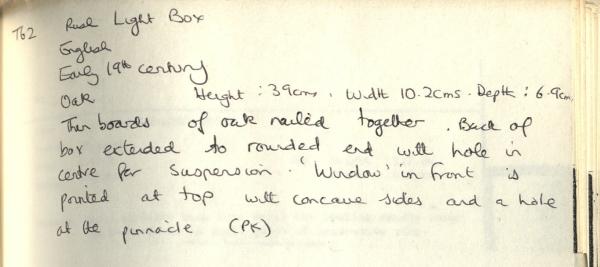 T62 Rush Light Box
English
Early 19th century
Oak Height : 39cms. Width 10.2cms. Depth : 6.9cm
Thin boards of oak nailed together. Back of
box extended to rounded end with hole in
centre for suspension. 'Window' in front is
pointed at top with concave sides and a hole
at the pinnacle (PK)